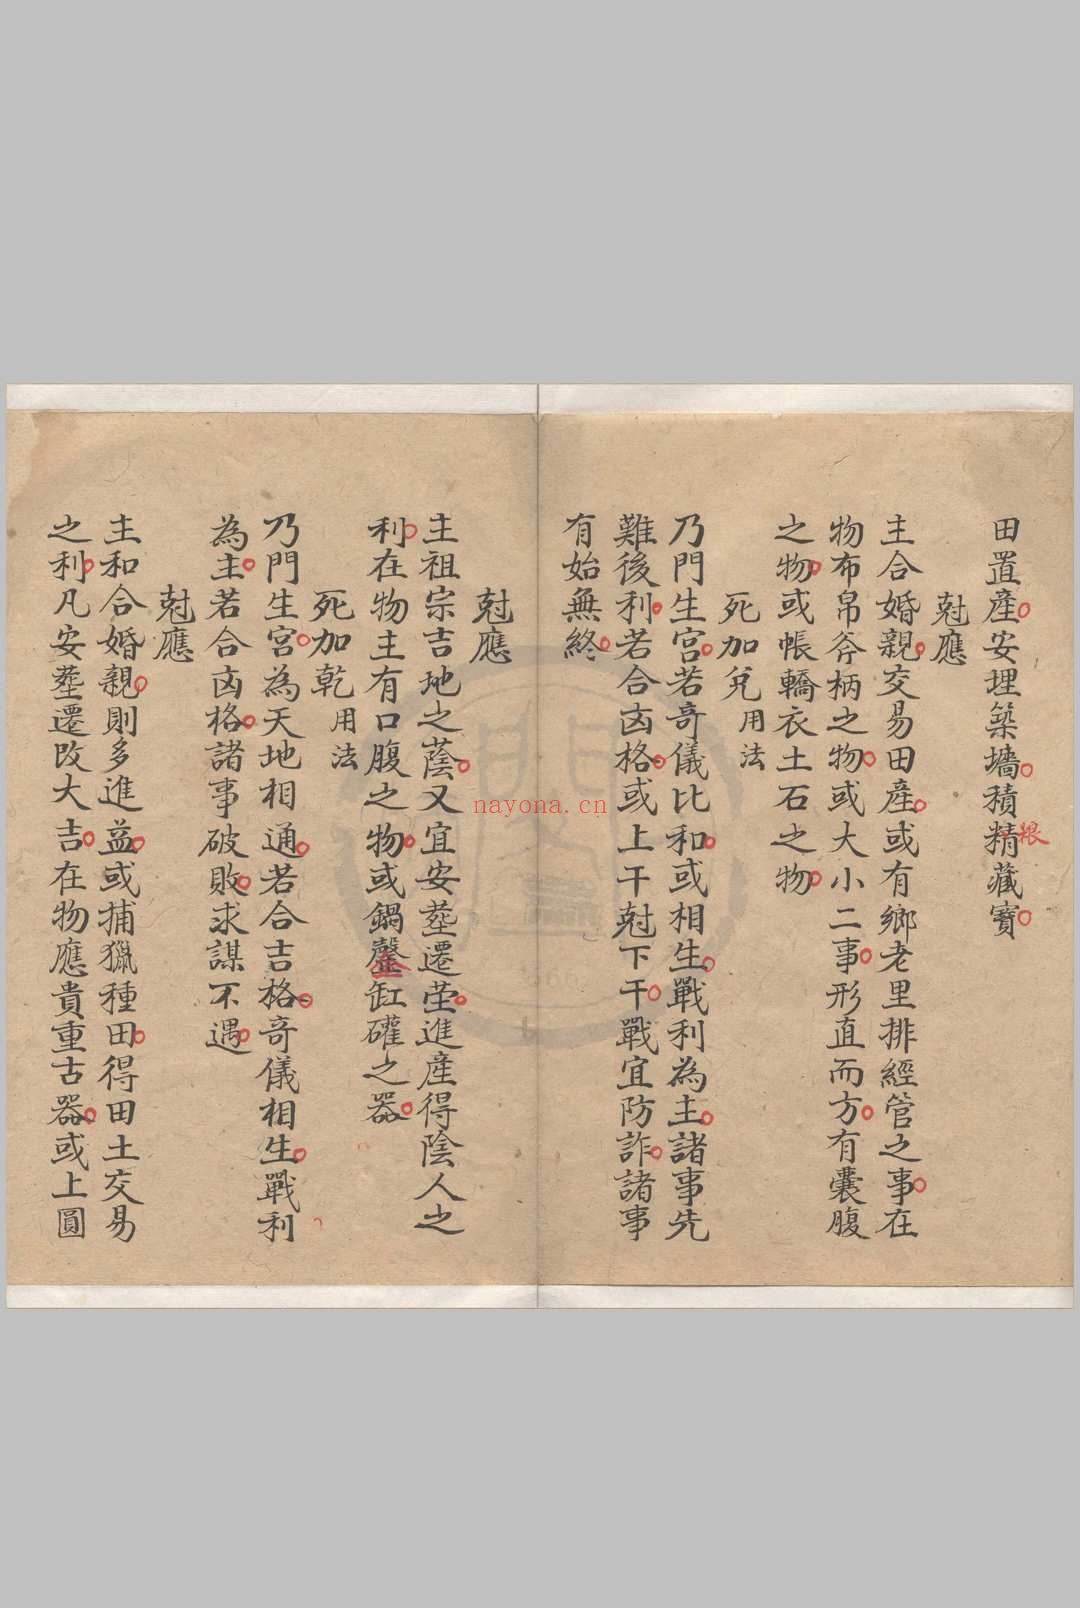 田置產安埋築墻積精藏寶
根
尅應
主合婚親交易田產或有鄉老里排經管之事在
物布帛斧柄之物或大小二事形直而方有囊腹
之物或帳轎衣土石之物
死加兌用法
乃門生宮若奇儀比和或相生戰利為主諸事先
難後利若合凶格或上干尅下干戰宜防詐諸事
有始無終
尅應
主祖宗吉地之蔭又宜安塟遷茔進產得陰人之
利在物主有口腹之物或鍋罄缸礶之器
死加乾用法
乃門生宮為天地相通若合吉格奇儀相生戰利
為主若合凶格諸事破敗求謀不遇
尅應
主和合婚親則多進益或捕獵種田得田土交易
之利凡安塟遷改大吉在物應貴重古器或上圓
nayona.cn